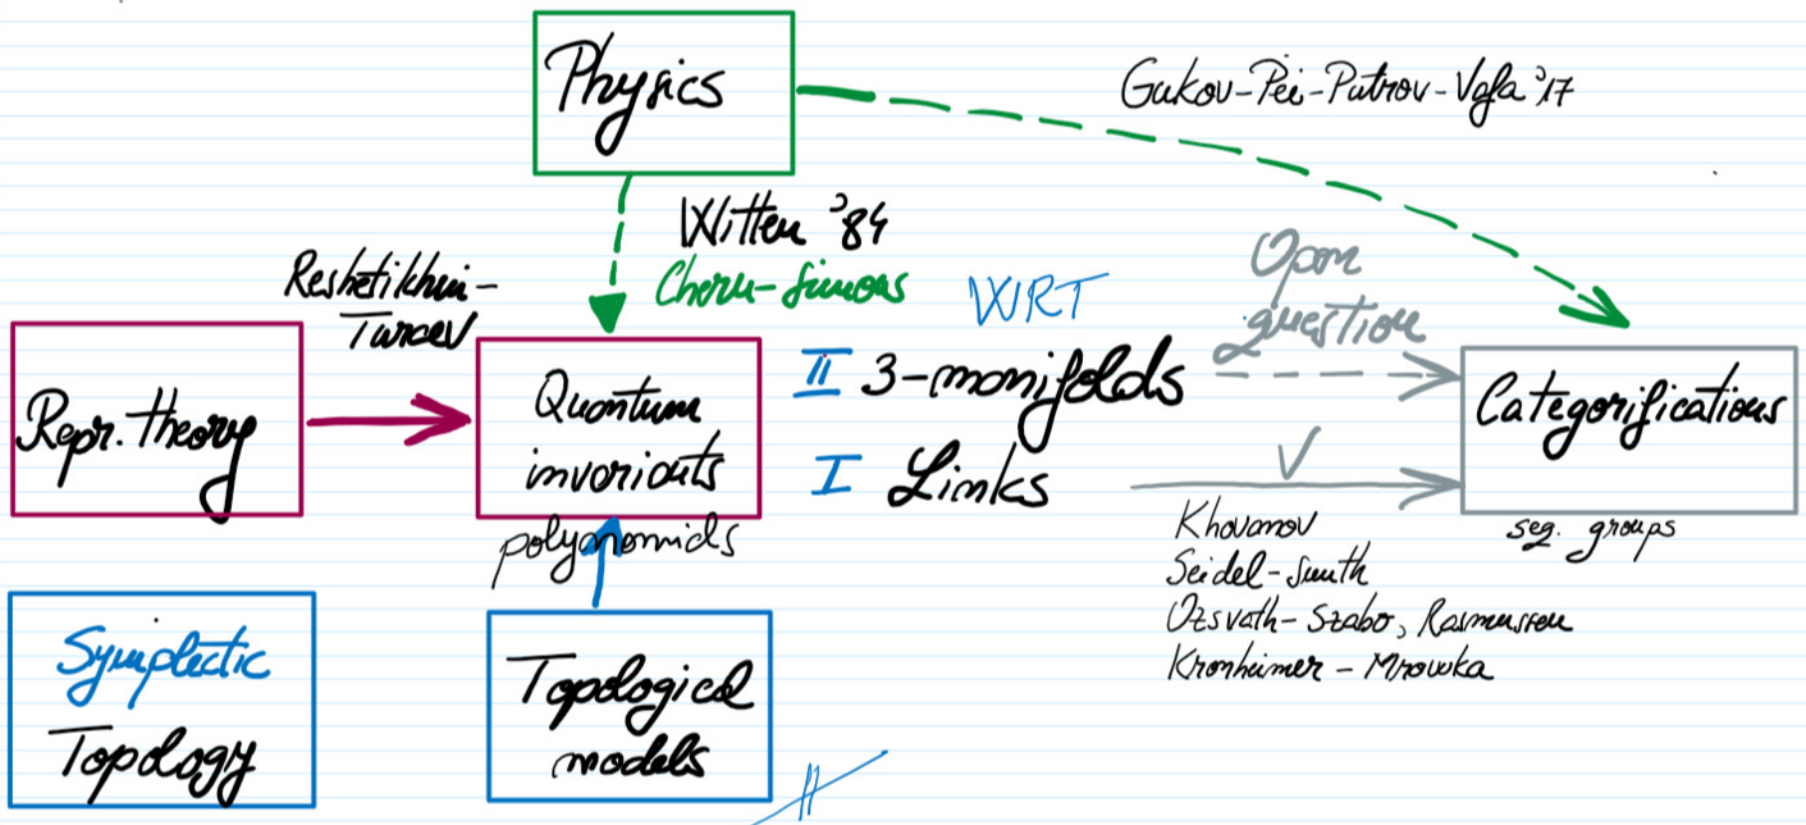 Physics
Gukov-Pei-Putrov-Vafa '17
Witten '84
Chern-Simons
Reshetikhin-
Turaev
WRT
Open
question
II 3-manifolds
Repr. theory
Quantum
invariants
Categorifications
I Links
polynomials
seq. groups
Khovanov
Seidel-Smith
Ozsvath-Szabo, Rasmussen
Kronheimer - Mrowka
Symplectic
Topology
Topological
models